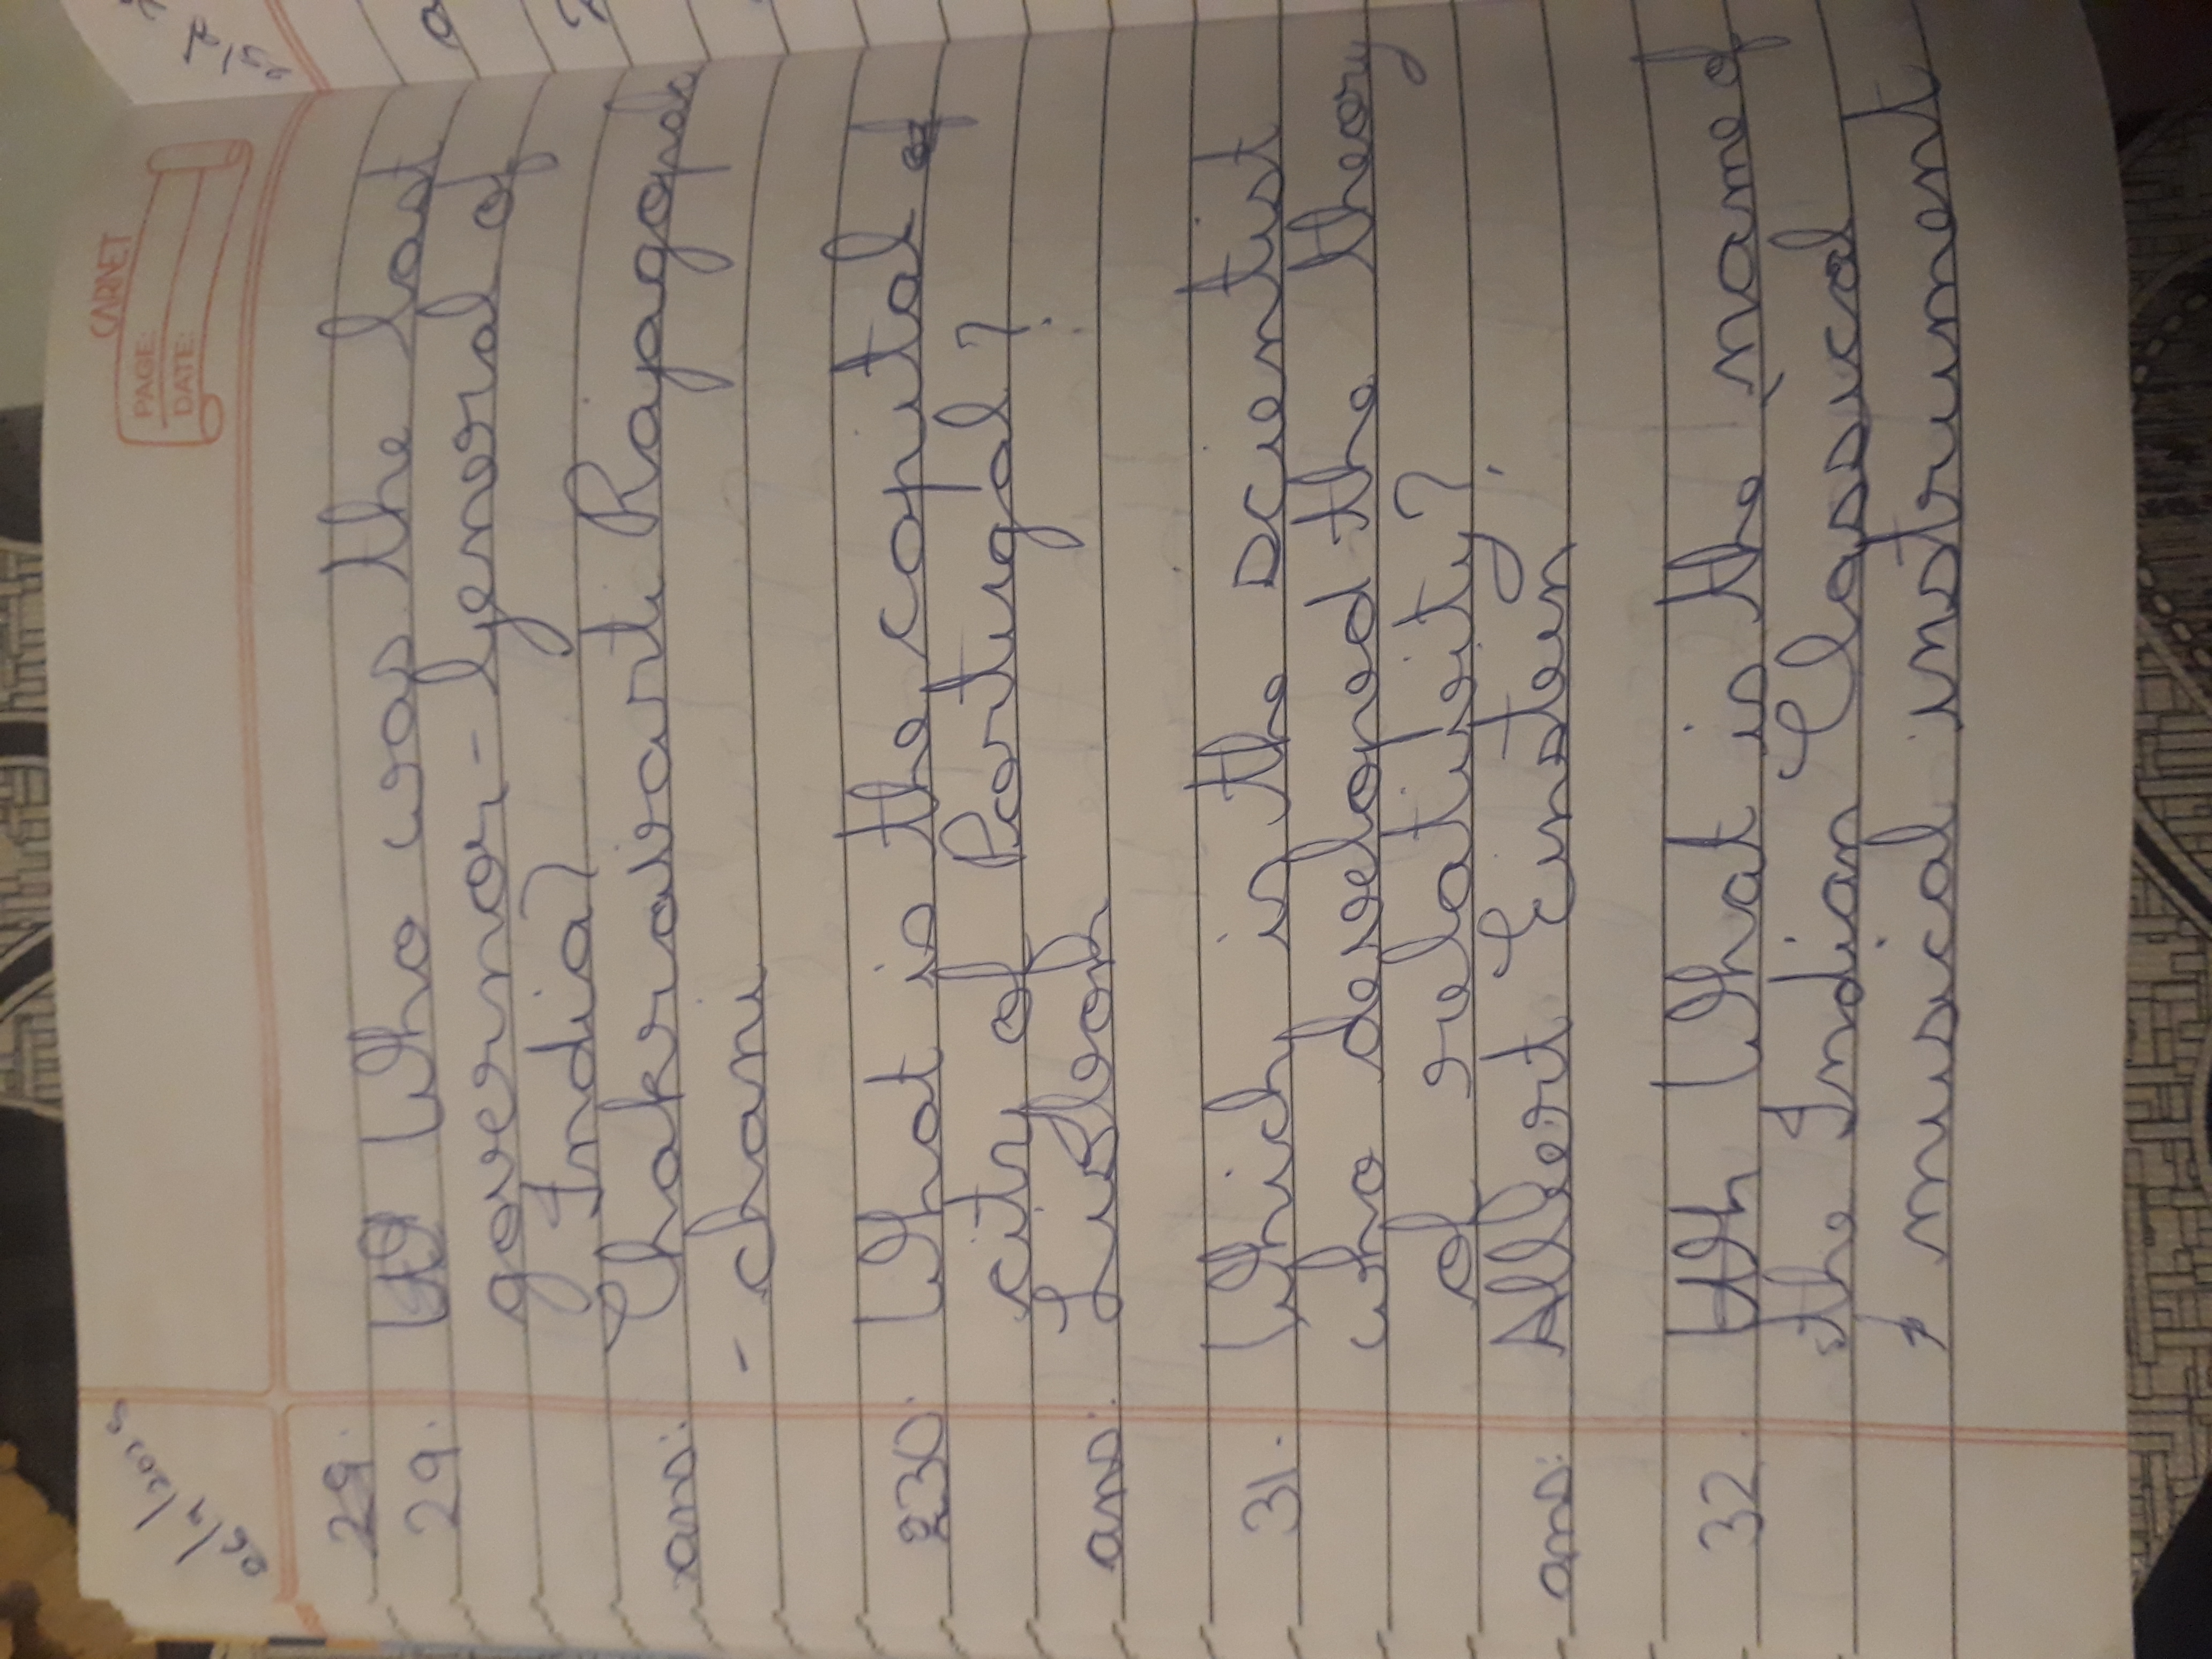 CARNET
PAGE:
DATE:
29.
29. Who was the last
governor-General of
India?
ans: Chakravarti Rajagopala
-chari
30. What is the capital of
city of Portugal?
ans: Lisbon
31. Which is the scientist
who developed the theory
of relativity?
ans: Albert Einstein
32. What is the name of
the Indian Classical
musical instrument